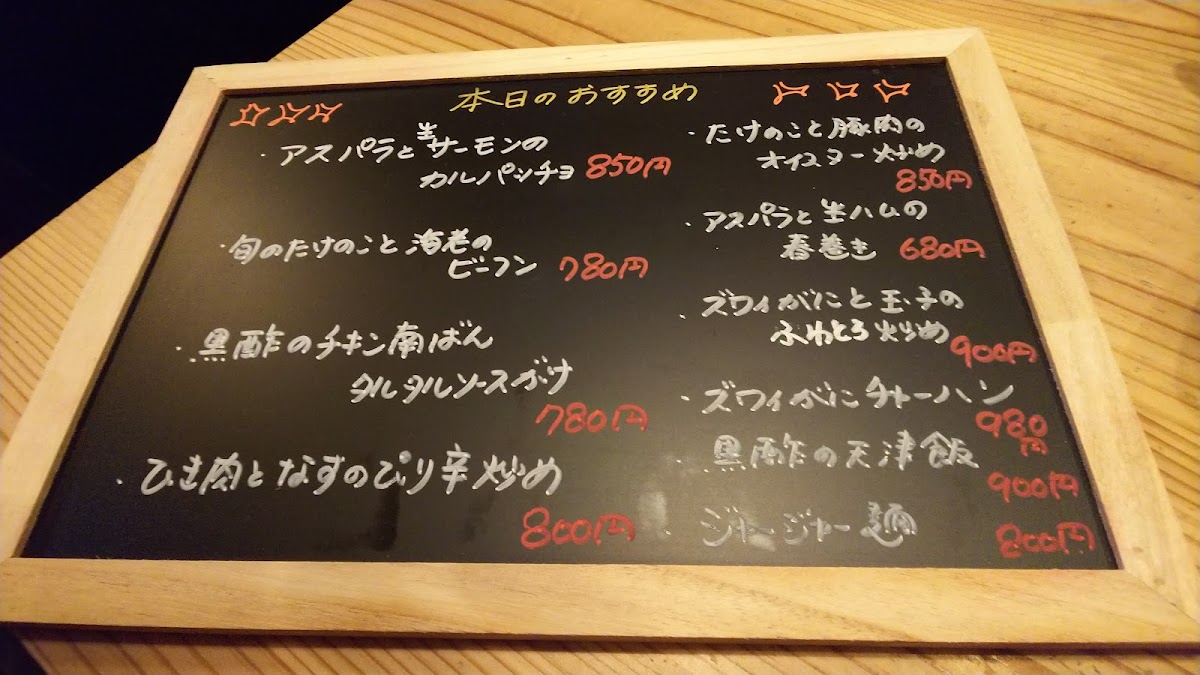 本日のおすすめ
・アスパラと生サーモンの
カルパッチョ 850円
・旬のたけのこと海老の
ビーフン 780円
・黒酢のチキン南ばん
タルタルソースがけ
780円
・ひき肉となすのぴり辛炒め
800円
・たけのこと豚肉の
オイスター炒め
850円
・アスパラと生ハムの
春巻き 680円
・ズワイがにと玉子の
ふわとろ炒め 900円
・ズワイがにチャーハン
980円
・黒酢の天津飯
900円
・ジャージャー麺 800円